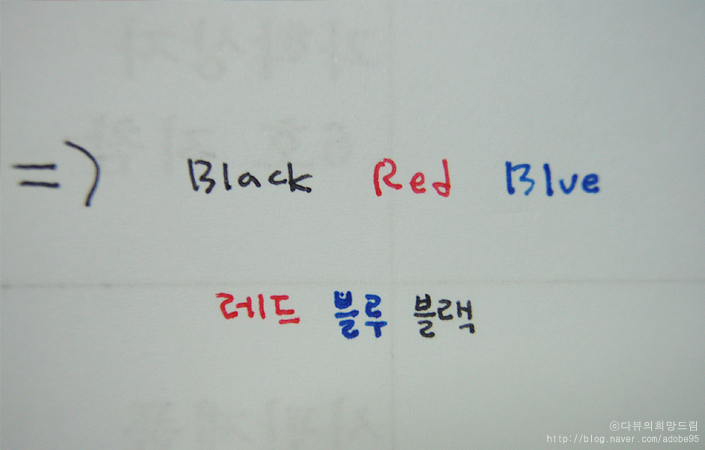 => Black Red Blue
레드 블루 블랙
ⓒ다뷰의희망드림
http://blog.naver.com/adobe95